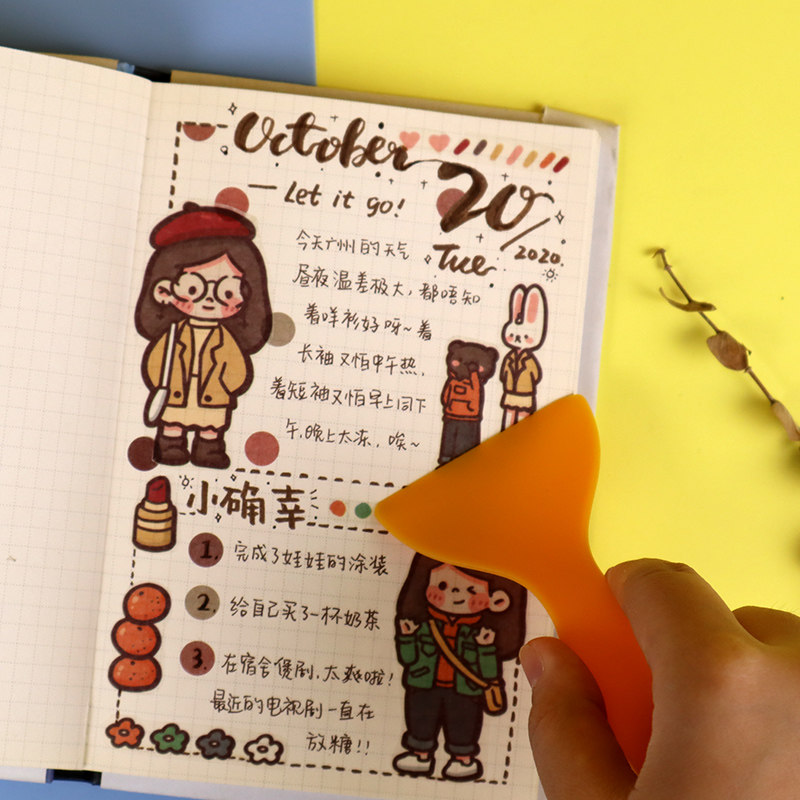 October
20/2020
— Let it go!
Tue
今天广州的天气
昼夜温差极大，都唔知
着咩衫好呀~着
长袖又怕中午热，
着短袖又怕早上同下
午,晚上太冻，唉~
小确幸
1. 完成了娃娃的涂装
2. 给自己买了一杯奶茶
3. 在宿舍煲剧,太爽啦!
最近的电视剧一直在
放糖!!